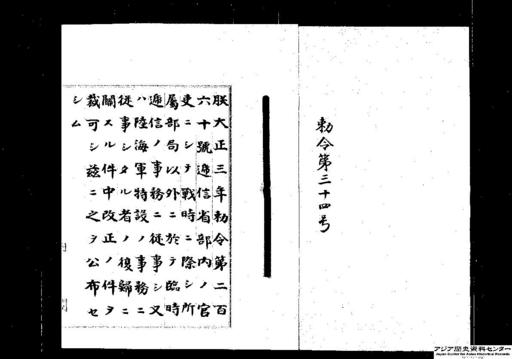 勅令第三十四号
朕大正三年勅令第二百
六十號逓信省部内ノ官
吏ニシテ戰時ニ際シ所
屬部局以外ニ於テ臨時
逓信ノ事務ニ從事シ又
ハ陸海軍特設ノ事務ニ
從事シタル者ノ復歸ニ
關スル件中改正ノ件ヲ
裁可シ茲ニ之ヲ公布セ
シム
アジア歴史資料センター
Japan Center for Asian Historical Records